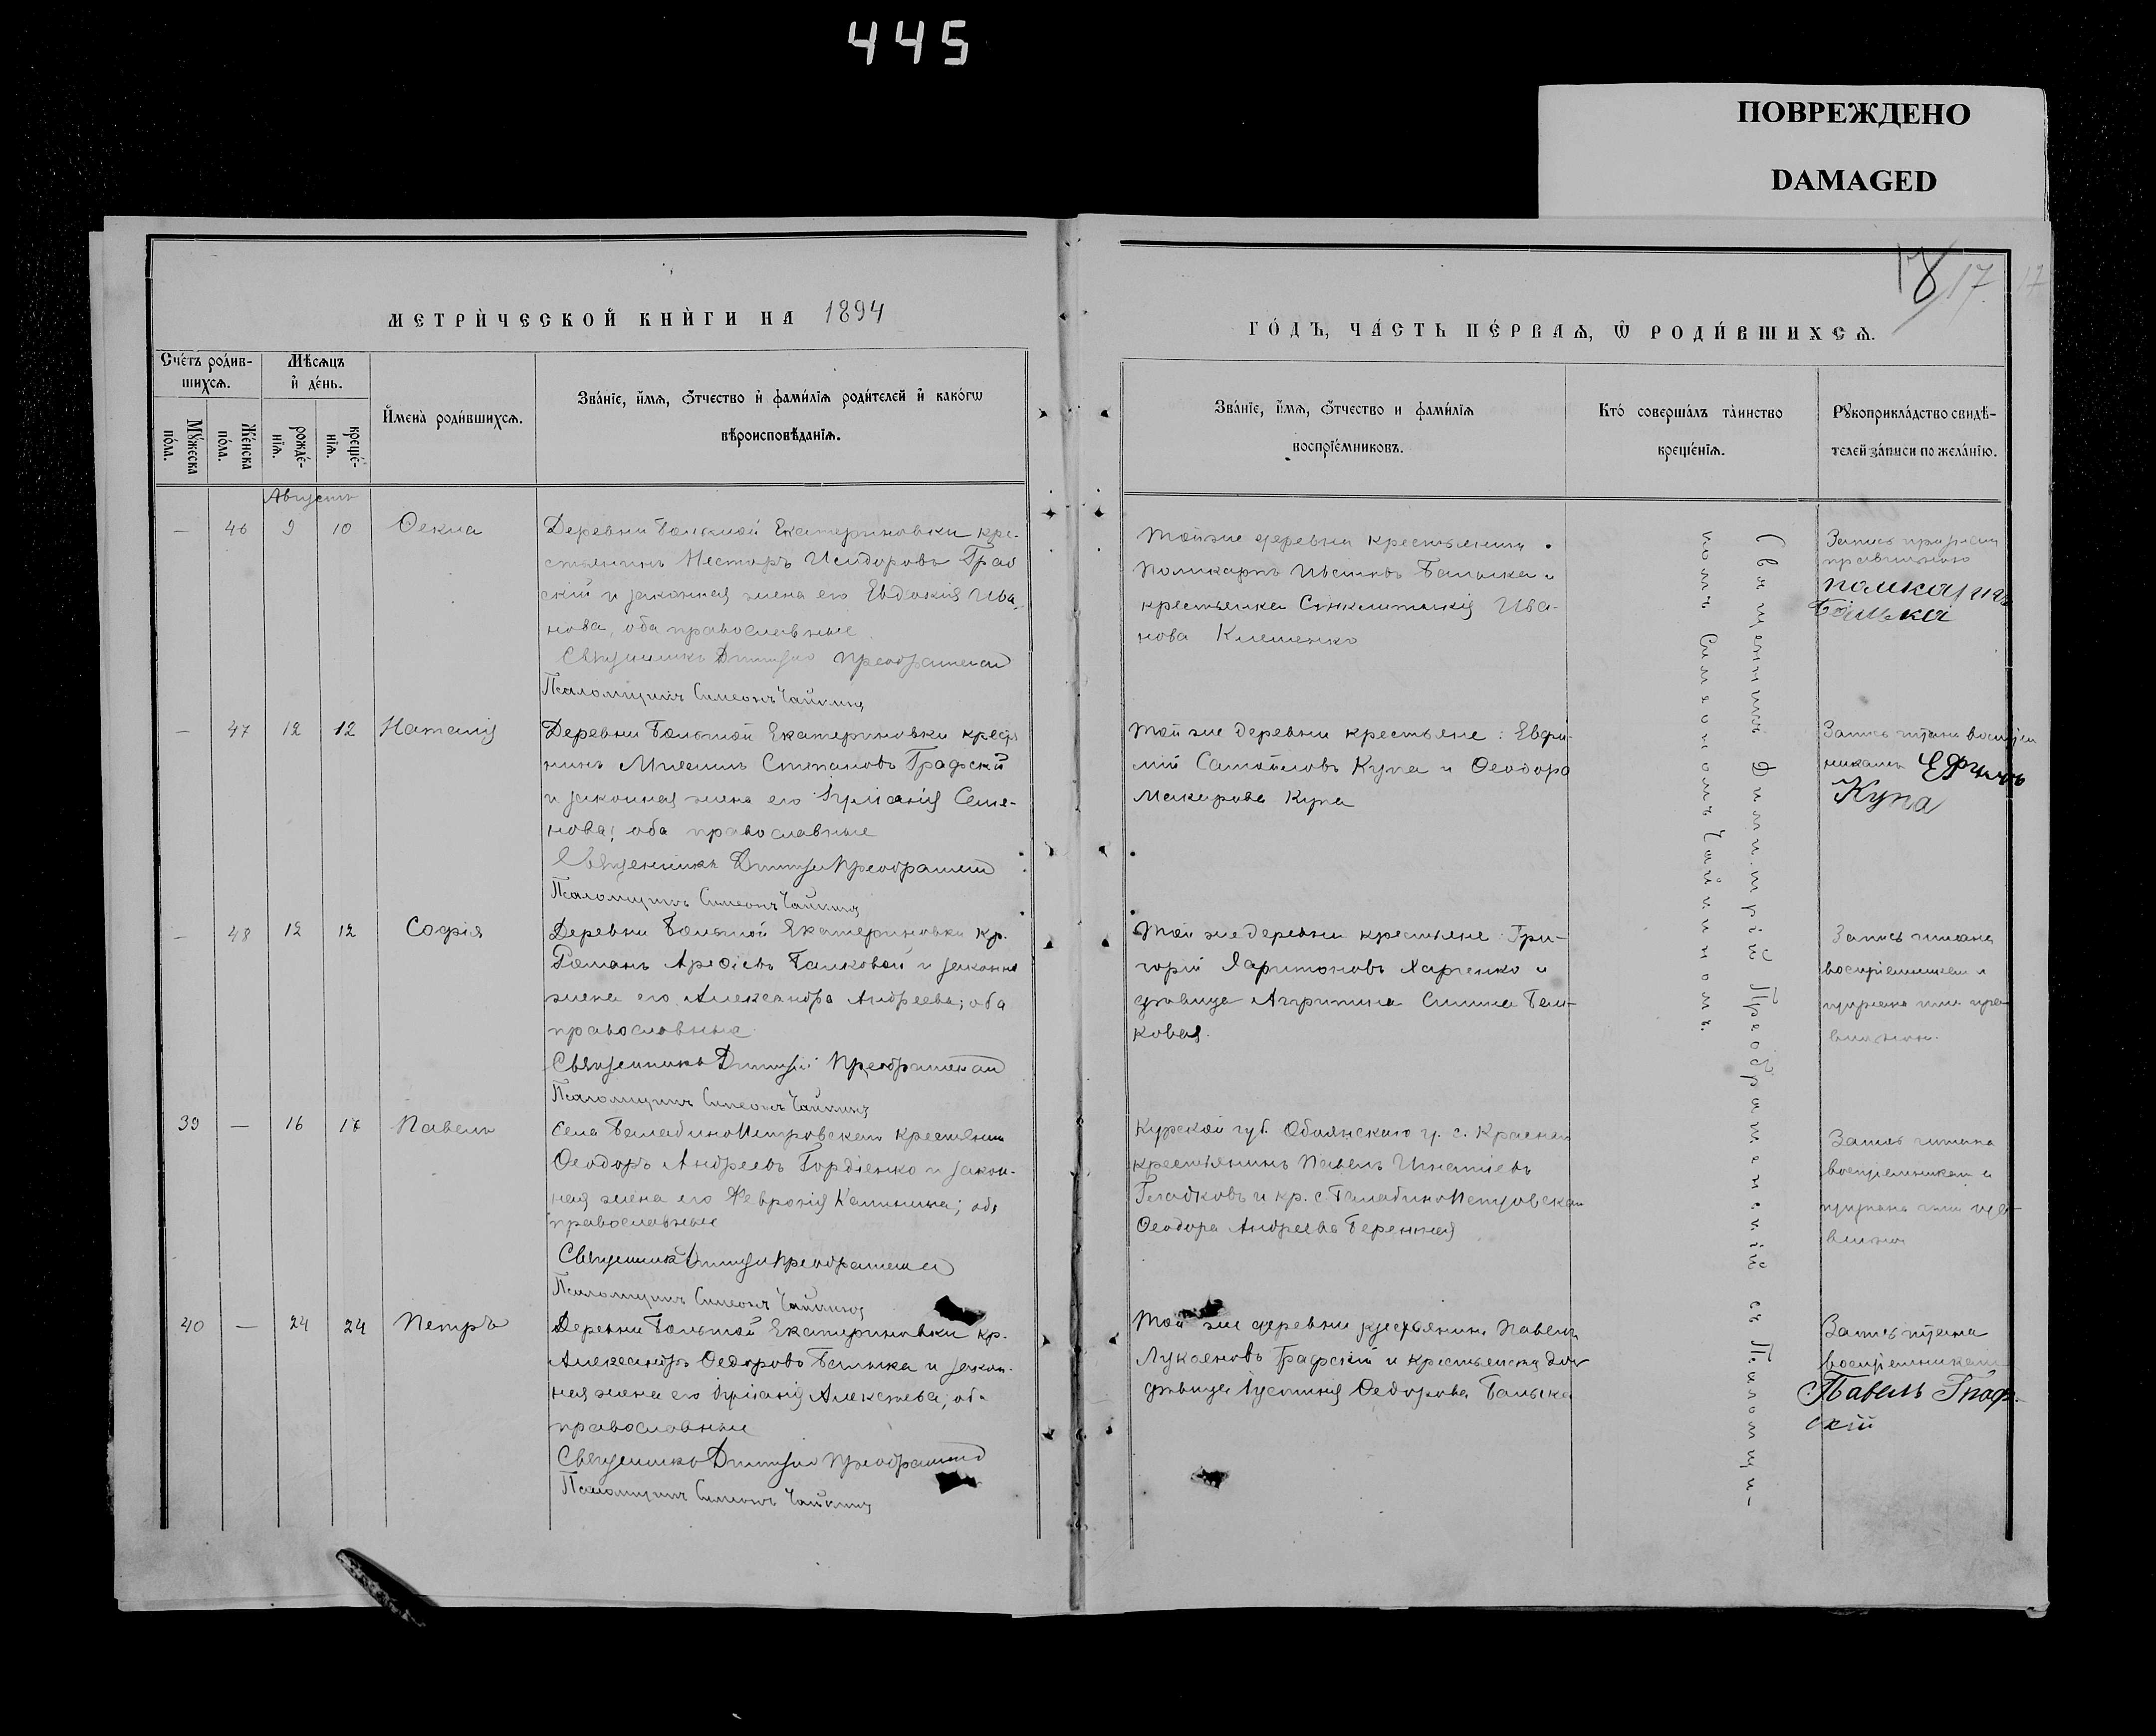 445
ПОВРЕЖДЕНО
DAMAGED
18/17 17
МЕТРИ́ЧЕСКОЙ КНИ́ГИ НА 1894
ГО́ДЪ, ЧА́СТЬ ПЕ́РВАѦ, Ѽ РОДИ́ВШИХСѦ.
Сче́тъ роди́в-
шихсѧ.
Мѣ́сѧцъ
и҆ де́нь.
Мꙋ́жеска
по́ла.
Же́нска
по́ла.
рожде́-
нїѧ.
креще́-
нїѧ.
И҆мена̀ роди́вшихсѧ.
Зва́нїе, и҆́мѧ, ѻ҆́тчество и҆ фами́лїѧ роди́телей и҆ како́гѡ
вѣроисповѣ́данїѧ.
Зва́нїе, и҆́мѧ, ѻ҆́тчество и фами́лїѧ
воспрїе́мниковъ.
Кто́ соверша́лъ та̀инство
креще́нїѧ.
Рꙋкоприкла́дство свидѣ́-
телей за́писи по жела́нїю.
Августъ
— 46 9 10 Ѳекла
Деревни Большой Екатериновки кре-
стьянинъ Несторъ Исидоровъ Граф
скій и законная жена его Евдокія Ива-
нова, оба православные
Священникъ Димитрій Преображенскій
Псаломщикъ Симеонъ Чайкинъ
Той же деревни крестьянинъ
Поликарпъ Балыка и
крестьянка Ива-
нова Клименко
Запись
правильною
Балыка
— 47 12 12 Наталія
Деревни Большой Екатериновки крестья
нинъ Михаилъ Степановъ Графскій
и законная жена его Іуліанія Семе-
нова; оба православные
Священникъ Димитрій Преображенскій
Псаломщикъ Симеонъ Чайкинъ
Той же деревни крестьяне: Евфи-
мій Самойловъ Купа и Ѳеодора
Макарова Купа
Запись читана воспріем
никами Ефимъ
Купа
— 48 12 12 Софія
Деревни Большой Екатериновки кр.
Романъ Балковой и законная
жена его Александра Андреева; оба
православные
Священникъ Димитрій Преображенскій
Псаломщикъ Симеонъ Чайкинъ
Той же деревни крестьяне Гри-
горій Харитоновъ Харченко и
дѣвица Агрипина Бал-
ковая.
Запись читана
воспріемниками и
признана ими пра-
вильною.
39 — 16 17 Павелъ
Села Балабино Петровскаго крестьянинъ
Ѳеодоръ Андреевъ Гордіенко и закон-
ная жена его Февронія Калинина; оба
православные
Священникъ Димитрій Преображенскій
Псаломщикъ Симеонъ Чайкинъ
Курской губ. Обоянскаго у. с.
крестьянинъ Павелъ Игнатіевъ
Гладковъ и кр. с. Балабино Петровскаго
Ѳеодора Андреева Бережная
Запись читана
воспріемниками и
признана ими пра-
вильною
40 — 24 24 Петръ
Деревни Большой Екатериновки кр.
Александръ Ѳедоровъ Балыка и закон-
ная жена его Іуліанія Алексѣева; оба
православные
Священникъ Димитрій Преображенскій
Псаломщикъ Симеонъ Чайкинъ
Той же деревни крестьянинъ Павелъ
Лукьяновъ Графскій и крестьянская дочь
дѣвица Іустинія Ѳедорова Балыка
Запись читана
воспріемниками
Павелъ Граф-
скій
Священникъ Димитрій Преображенскій съ Псаломщи-
комъ Симеономъ Чайкиномъ.